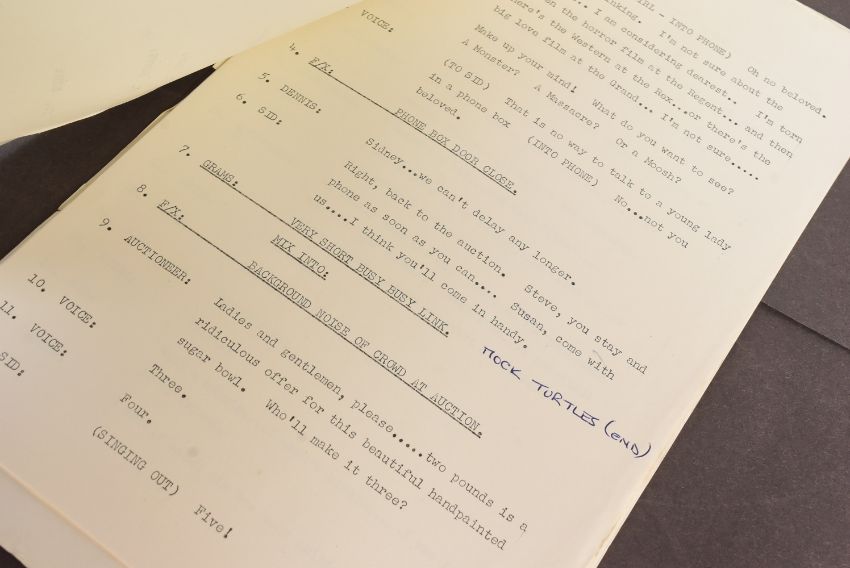 IRL - INTO PHONE) Oh no beloved.
inking. I'm not sure about the
... I am considering dearest.. I'm torn
en the horror film at the Regent... and then
here's the Western at the Rox...or there's the
big love film at the Grand... I'm not sure.....
VOICE: Make up your mind! What do you want to see?
A Monster? A Massacre? Or a Moosh?
(TO SID) That is no way to talk to a young lady
in a phone box (INTO PHONE) No...not you
beloved.
4. F/X: PHONE BOX DOOR CLOSE.
5. DENNIS: Sidney...we can't delay any longer.
6. SID: Right, back to the auction. Steve, you stay and
phone as soon as you can.... Susan, come with
us....I think you'll come in handy.
MOCK TURTLES (END)
7. GRAMS: VERY SHORT BUSY BUSY LINK.
MIX INTO:
8. F/X: BACKGROUND NOISE OF CROWD AT AUCTION.
9. AUCTIONEER: Ladies and gentlemen, please.....two pounds is a
ridiculous offer for this beautiful handpainted
sugar bowl. Who'll make it three?
10. VOICE: Three.
11. VOICE: Four.
SID: (SINGING OUT) Five!